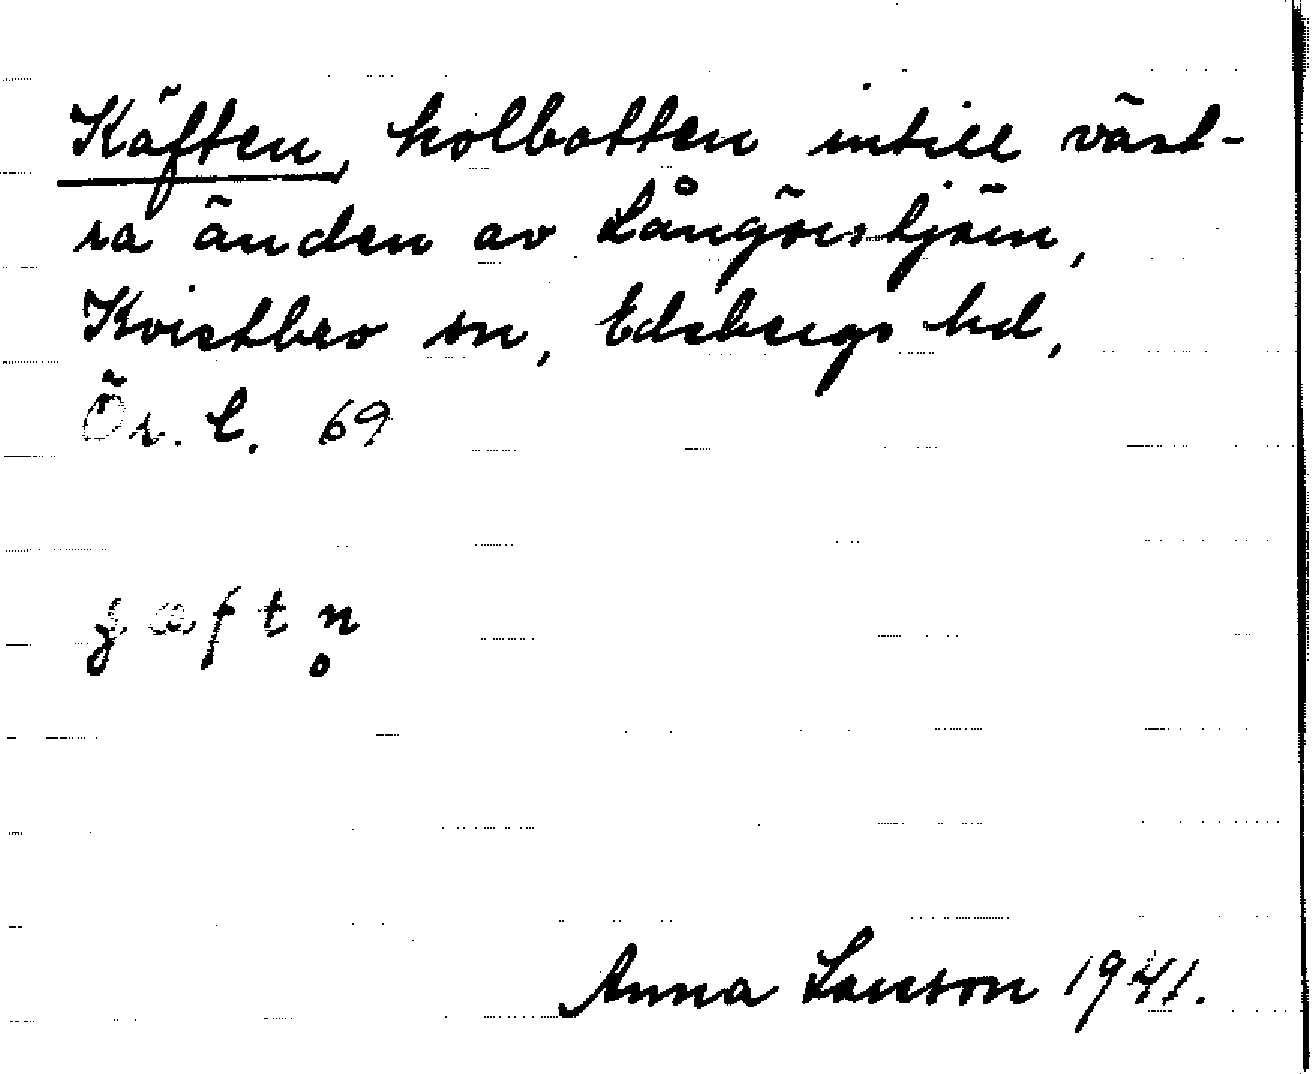 Käften, kolbotten intill väst-
ra änden av Långörstjärn,
Kvistbro sn, Edsbergs hd,
Ör. l. 69
ꞔæftn̥
Anna Larsson 1941.